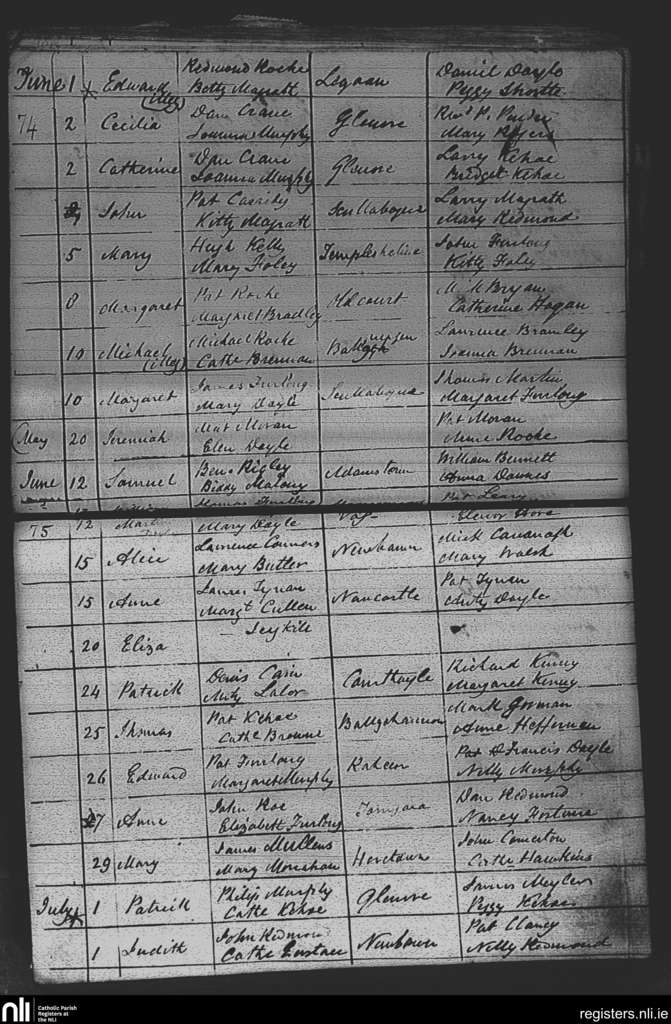 June 1 x Edward Redmond Roche Legaan Daniel Doyle
(Illeg) Betty Magrath Peggy Shortte
74 2 Cecilia Dan Crane Glenore Revd P.
Joanna Murphy Mary Rogers
2 Catherine Dan Crane Glenore Larry Kehoe
Joanna Murphy Bridget Kehoe
John Pat Cassidy Scullabogue Larry Magrath
Kitty Magrath Mary Redmond
5 Mary Hugh Kelly Templeshelin John Furlong
Mary Foley Kitty Foley
8 Margaret Pat Roche Old court M. McBryan
Margaret Bradley Catherine Hogan
10 Michael Michael Roche Laurence Bramley
(Illeg) Cathe Brennan Joanna Brennan
10 Margaret James Furlong Scullabogue Thomas Martin
Mary Doyle Margaret Furlong
(May 20 Jeremiah Mat Moran Pat Moran
Elen Doyle Anne Roche
June 12 Samuel Benj Rigley Adamstown William Burnett
Biddy Malony Anna Downes
75 12 Thomas Furlong Pat Leary
Mary Doyle Elenor Hore
15 Alice Laurence Connors Newbawn Mick Cavanagh
Mary Butler Mary Walsh
15 Anne James Tynan Newcastle Pat Tynan
Margt Cullen Doyle
20 Eliza
24 Patrick Denis Cain Courthoyle Richard Kenny
Lalor Margaret Kenny
25 Thomas Pat Kehoe Mark Gorman
Cathe Browne Anne Heffernan
26 Edward Pat Furlong Raheen Pat & Francis Doyle
Margaret Murphy Nelly Murphy
27 Anne John Roe Dan Redmond
Elizabeth Furlong Nancy Fortune
29 Mary James Mullens Horetown John Comerton
Mary Monahan Cathe Hawkins
July 1 Patrick Philip Murphy Glenore James Meyler
Cathe Kehoe Peggy Kehoe
1 Judith John Redmond Newbawn Pat Clancy
Cathe Eustace Nelly Redmond
nli Catholic Parish Registers at the NLI
registers.nli.ie